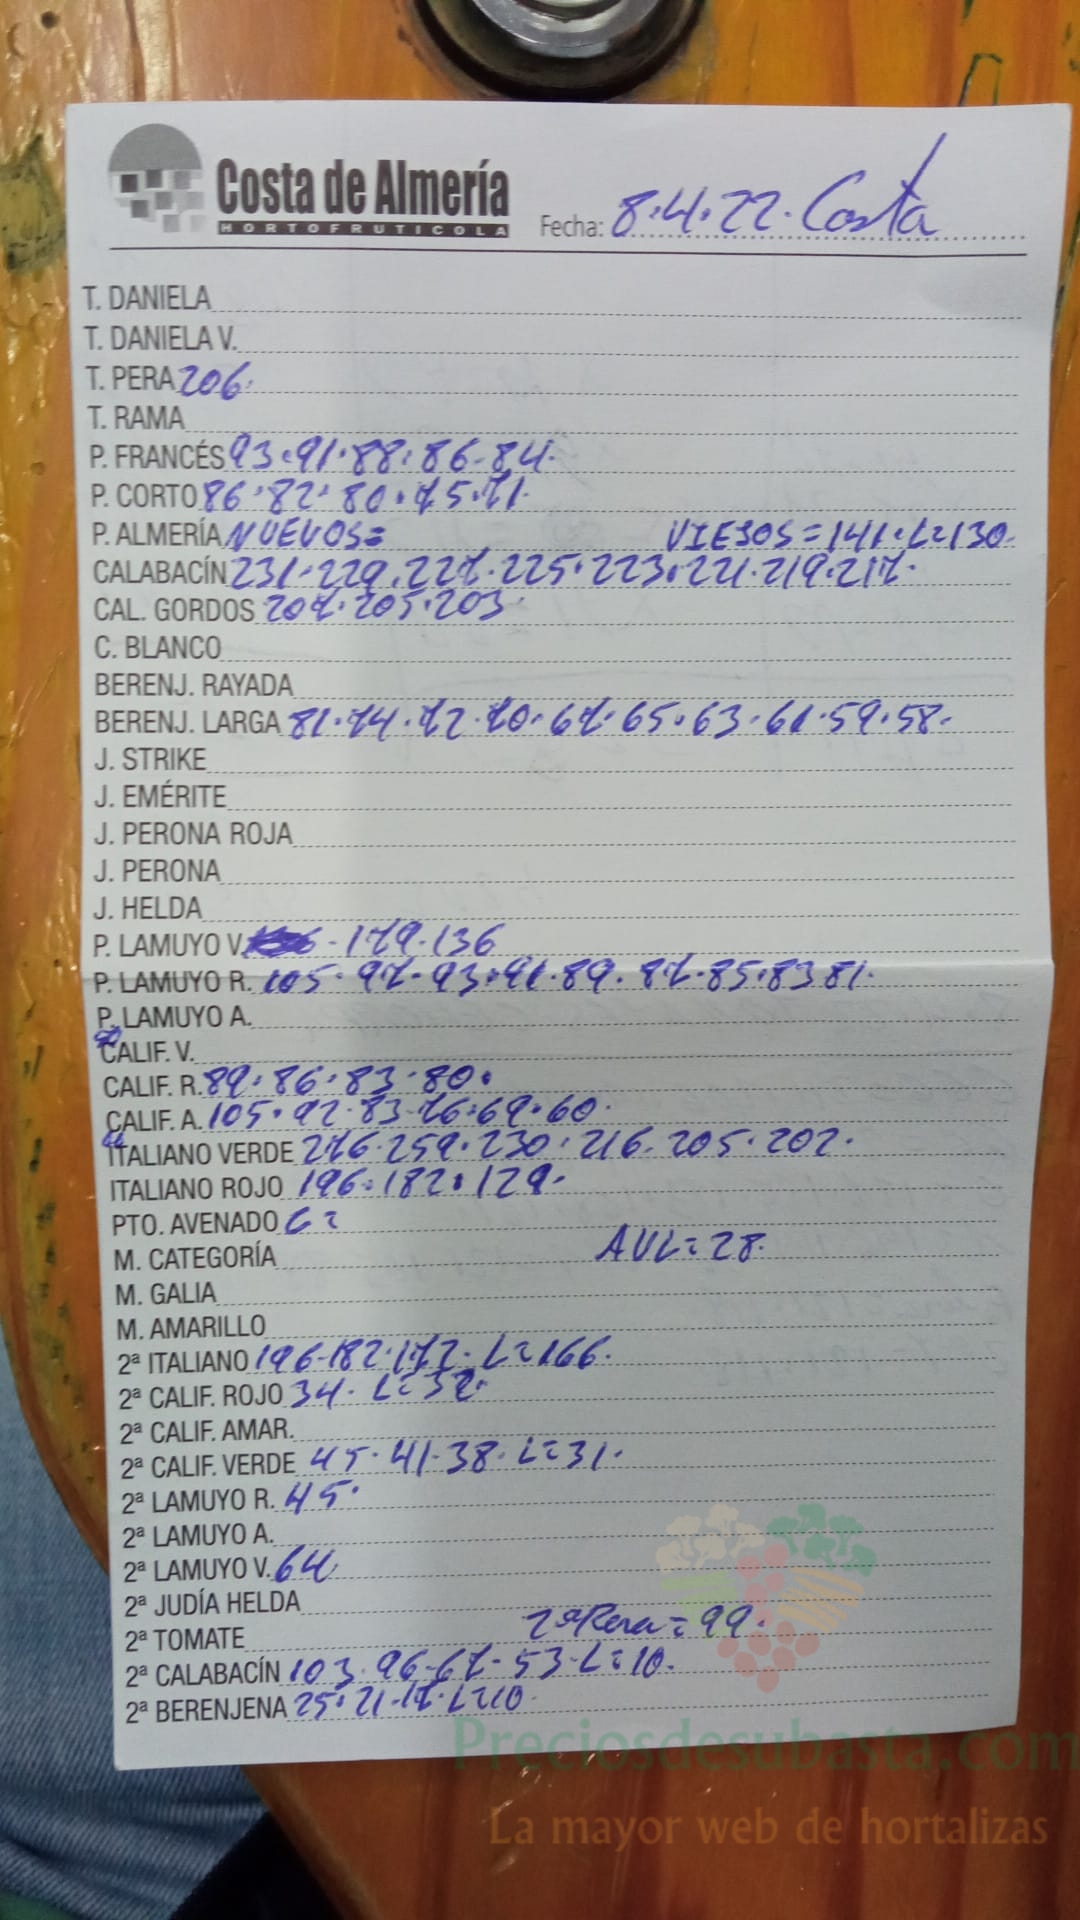 Costa de Almería
HORTOFRUTICOLA
Fecha: 8.4.22. Costa
T. DANIELA
T. DANIELA V.
T. PERA 206.
T. RAMA
P. FRANCÉS 93.91.88.86-84.
P. CORTO 86.82.80.75.71.
P. ALMERÍA NUEVOS= VIEJOS=141.L=130.
CALABACÍN 231-229.227.225.223.221.219.217.
CAL. GORDOS 207.205.203.
C. BLANCO
BERENJ. RAYADA
BERENJ. LARGA 81.74.72.70.67.65.63.61.59.58.
J. STRIKE
J. EMÉRITE
J. PERONA ROJA
J. PERONA
J. HELDA
P. LAMUYO V. -179.136
P. LAMUYO R. 105.97-93.91.89.87-85.83 81.
P. LAMUYO A.
CALIF. V.
CALIF. R. 89.86.83.80.
CALIF. A. 105.92.83.76.69.60.
ITALIANO VERDE 276.259.230.216.205.202.
ITALIANO ROJO 196.182.129.
PTO. AVENADO C=
M. CATEGORÍA AVL=28.
M. GALIA
M. AMARILLO
2ª ITALIANO 196-182.172. L=166.
2ª CALIF. ROJO 34. L=32.
2ª CALIF. AMAR.
2ª CALIF. VERDE 45.41-38. L=31.
2ª LAMUYO R. 45.
2ª LAMUYO A.
2ª LAMUYO V. 64
2ª JUDÍA HELDA
2ª TOMATE 2ª Pera=99.
2ª CALABACÍN 103.96-67-53-L=10.
2ª BERENJENA 25.21-17.L=10.
Preciosdesubasta.com
La mayor web de hortalizas